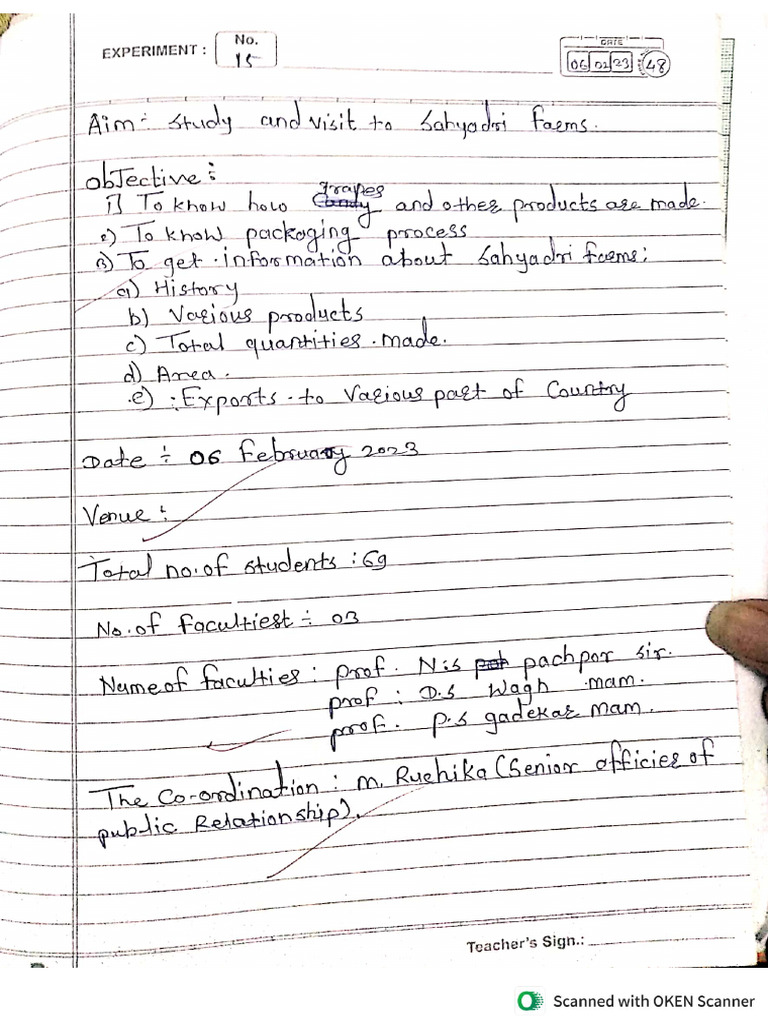 EXPERIMENT : No. 15
DATE
06 02 23 48
Aim:- Study and visit to Sahyadri Farms.
Objective :
1) To know how grapes and other products are made.
2) To know packaging process
3) To get information about Sahyadri farms:
a) History
b) Various products
c) Total quantities made.
d) Area.
e) : Exports to Various part of Country
Date ÷ 06 February 2023
Venue :
Total no. of students : 69
No. of Facultiest ÷ 03
Name of faculties : prof. N.S pachpor sir.
prof : D.S Wagh mam.
prof. P.S gadekar mam.
The Co-ordination : M. Ruchika (Senior officies of
public Relationship).
Teacher's Sign.:
Scanned with OKEN Scanner